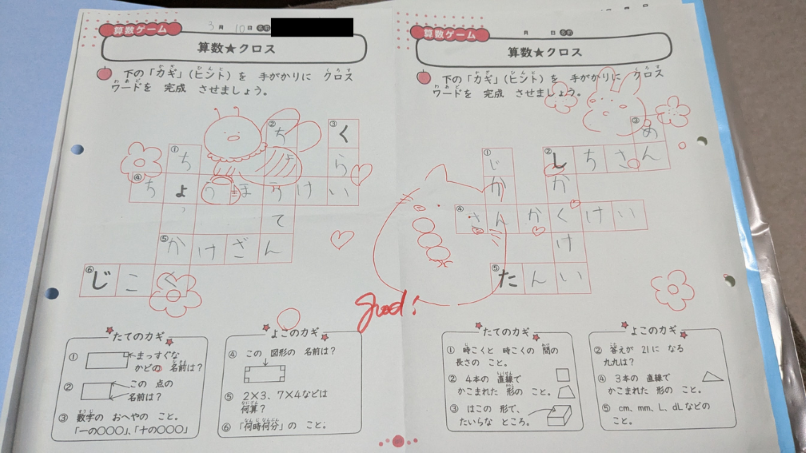 算数ゲーム
3月10日
算数★クロス
下の「カギ」(ヒント)を 手がかりに クロス
ワードを 完成 させましょう。
② ち ③ く
① ち ょ ら
④ ち ょ う ほ う け い
っ て
⑤ か け ざ ん
⑥ じ こ く
good!
たてのカギ
① まっすぐな
かどの 名前は?
② この 点の
名前は?
③ 数字の おへやの こと。
「一の○○○」、「十の○○○」
よこのカギ
④ この 図形の 名前は?
⑤ 2×3、7×4などは
何算?
⑥ 「何時何分」の こと。
算数ゲーム
月 日
算数★クロス
下の「カギ」(ヒント)を 手がかりに クロス
ワードを 完成 させましょう。
③ め
① じ ② し ち さ ん
か か
④ さ ん か く け い
け
⑤ た ん い
たてのカギ
① 時こくと 時こくの 間の
長さの こと。
② 4本の 直線で
かこまれた 形の こと。
③ はこの 形で、
たいらな ところ。
よこのカギ
② 答えが 21に なる
九九は?
④ 3本の 直線で
かこまれた 形の こと。
⑤ cm、mm、L、dLなどの
こと。